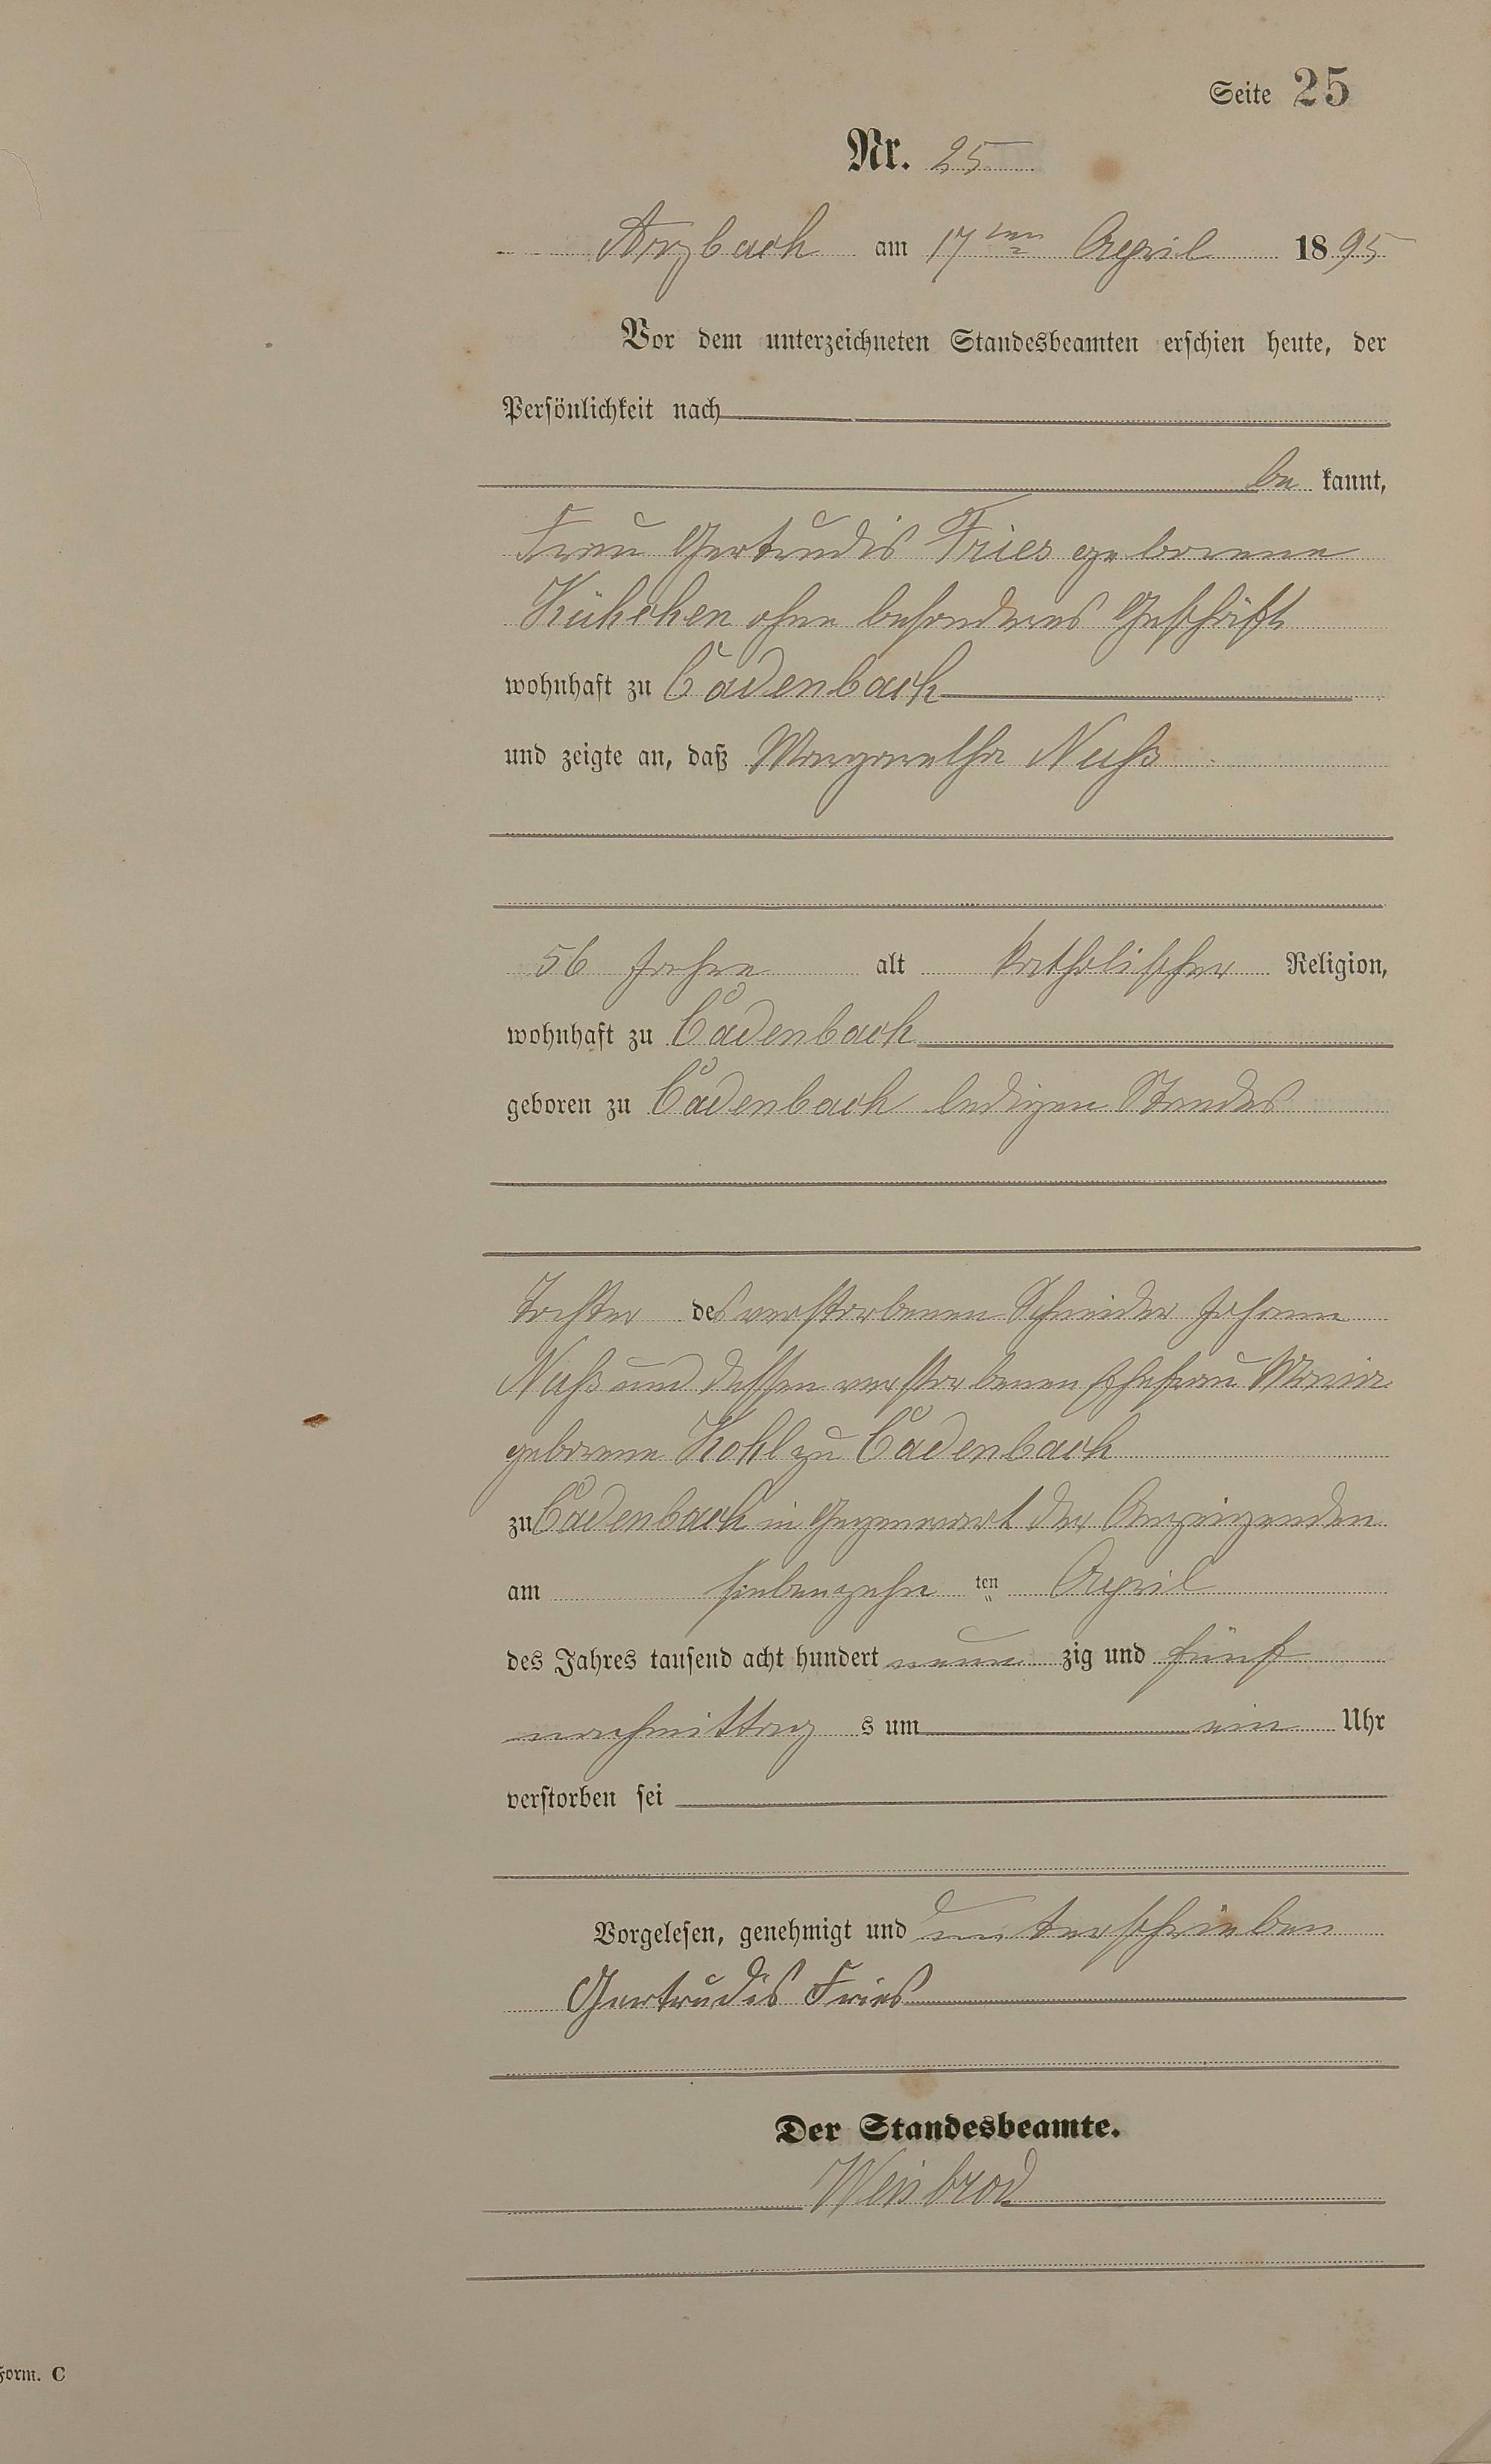 Seite 25
Nr. 25
Arzbach am 17ten April 1895
Vor dem unterzeichneten Standesbeamten erschien heute, der
Persönlichkeit nach
be kannt,
Frau Gertrudis Fries geborene
Kühchen ohne besonderes Geschäft
wohnhaft zu Cadenbach
und zeigte an, daß Margaretha Nuß
56 Jahre alt katholischer Religion,
wohnhaft zu Cadenbach
geboren zu Cadenbach ledigen Standes
Tochter des verstorbenen Schneider Johann
Nuß und dessen verstorbenen Ehefrau Maria
geborene Kohl zu Cadenbach
zu Cadenbach in Gegenwart der Anzeigenden
am siebenzehn ten April
des Jahres tausend acht hundert neun zig und fünf
nachmittag s um ein Uhr
verstorben sei
Vorgelesen, genehmigt und unterschrieben
Gertrudis Fries
Der Standesbeamte.
Weisbrod
Form. C